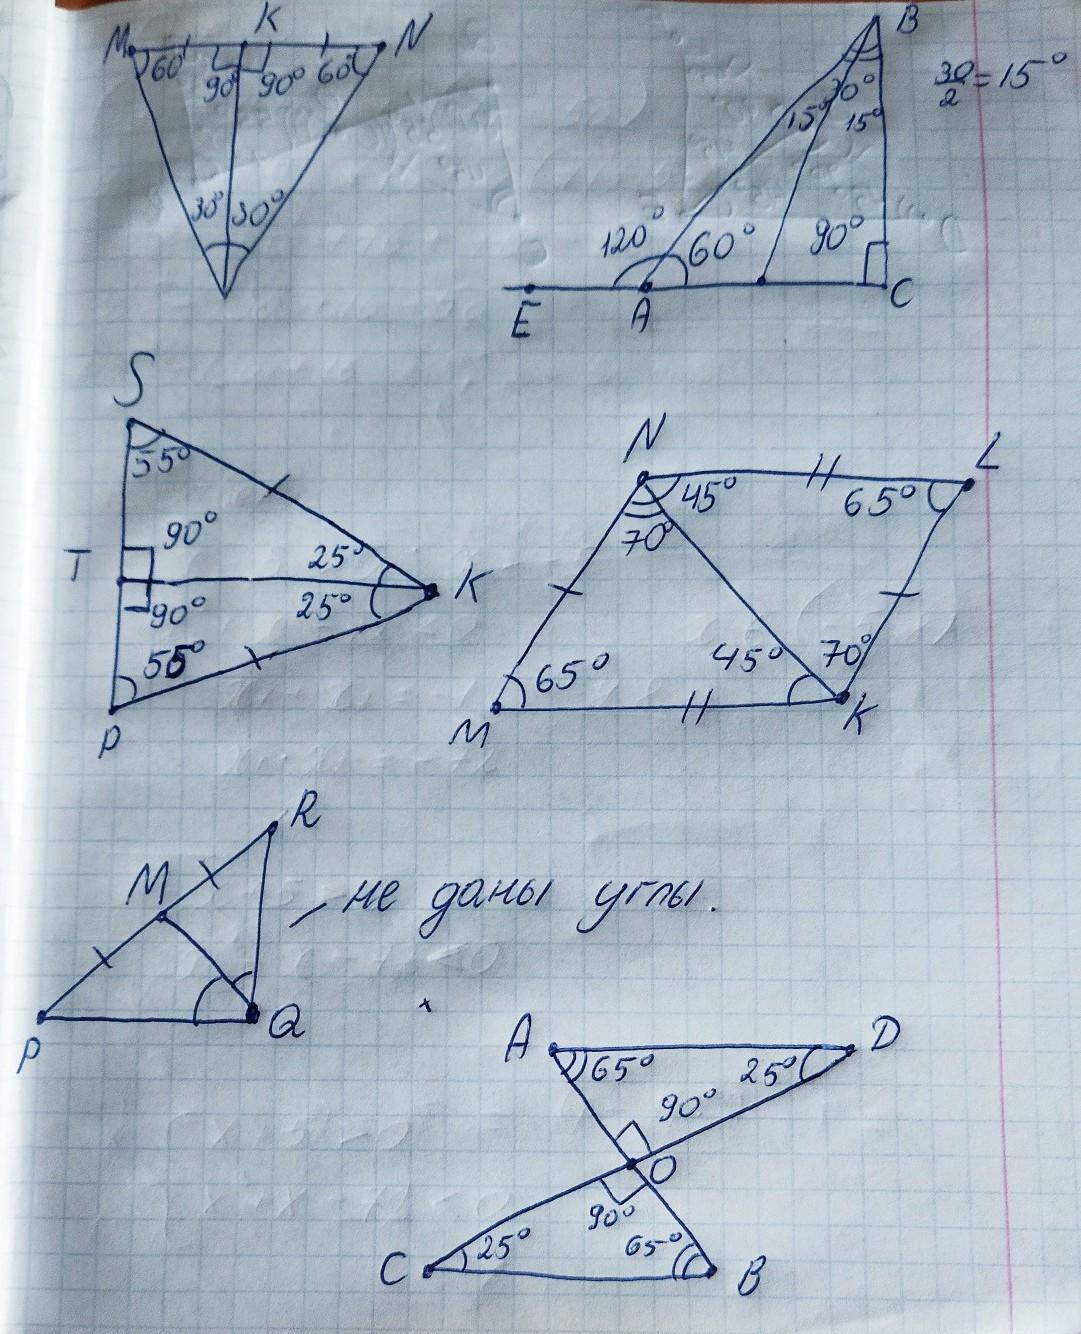 M K N
60° 90° 90° 60°
30° 30°
B
30°
15° 15°
30/2 = 15°
120° 60° 90°
E A C
S
55°
90°
T 25° K
90° 25°
55°
P
N L
45° 65°
70°
65° 45° 70°
M K
R
M
- не даны углы.
P Q
A D
65° 25°
90°
O
90°
25° 65°
C B